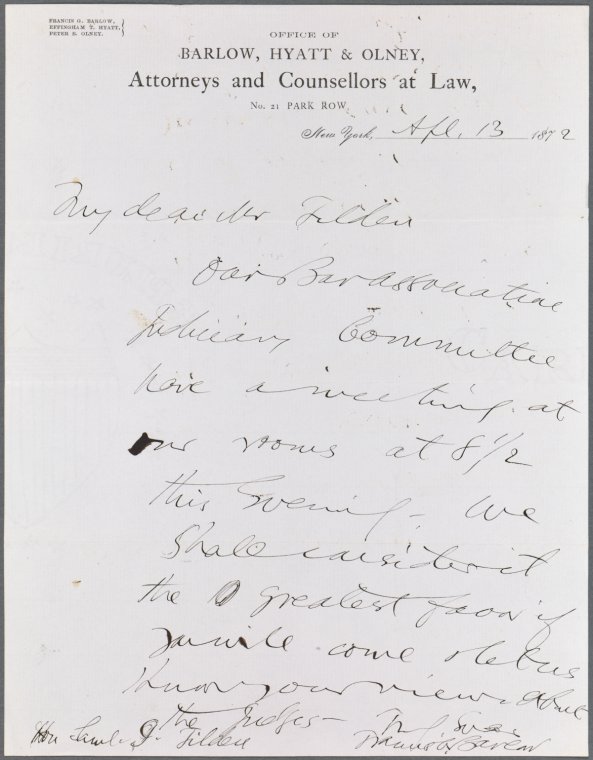 FRANCIS C. BARLOW,
EFFINGHAM T. HYATT,
PETER B. OLNEY.
OFFICE OF
BARLOW, HYATT & OLNEY,
Attorneys and Counsellors at Law,
No. 21 PARK ROW
New York, Apl. 13 1872
My dear Mr Tilden
Our Bar Association
Judiciary Committee
have a meeting at
our rooms at 8 1/2
this Evening - We
shall consider it
the greatest favor if
you will come & let us
know your views about
the Judges -
Francis C. Barlow
Hon Saml. J. Tilden